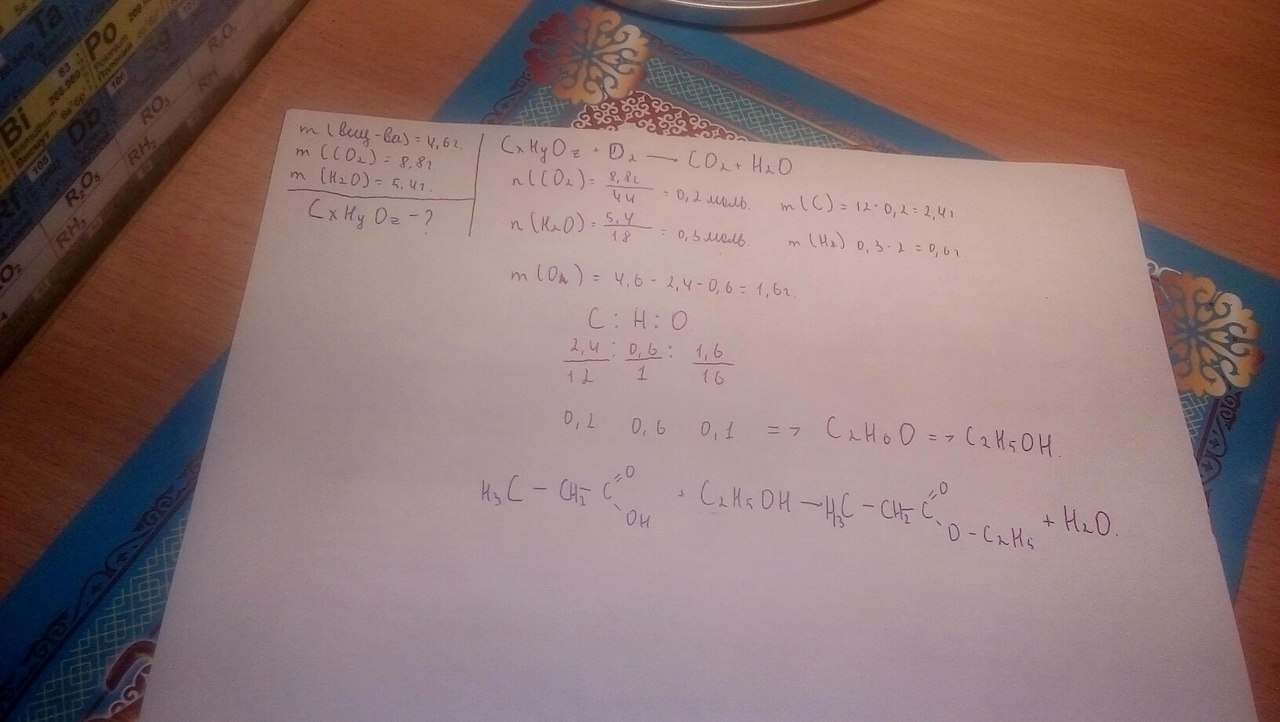 Ta
Po
Bi
83
Db
105
RO₃
RH₂
R₂O₅
RH₃
m (вещ-ва) = 4,6г.
m (CO₂) = 8,8г
m (H₂O) = 5,4г.
CxHyOz - ?
CxHyOz + O₂ → CO₂ + H₂O
n (CO₂) = 8,8г/44 = 0,2 моль. m (C) = 12·0,2 = 2,4г
n (H₂O) = 5,4/18 = 0,3 моль. m (H₂) 0,3·2 = 0,6г.
m (O₂) = 4,6 - 2,4 - 0,6 = 1,6г.
C : H : O
2,4/12 : 0,6/1 : 1,6/16
0,2 0,6 0,1 => C₂H₆O => C₂H₅OH.
H₃C - CH₂ - C (=O) - OH + C₂H₅OH → H₃C - CH₂ - C (=O) - O - C₂H₅ + H₂O.